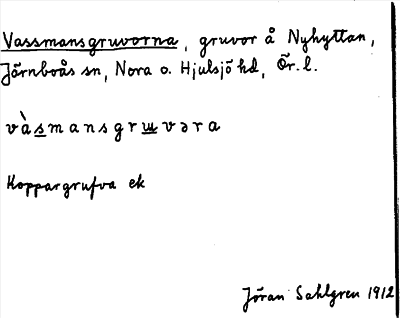 Vassmansgruvorna, gruvor å Nyhyttan,
Järnboås sn, Nora o. Hjulsjö hd, Ör. l.
và s m a n s g r ɯ v ə r a
Koppargrufva ek
Jöran Sahlgren 1912